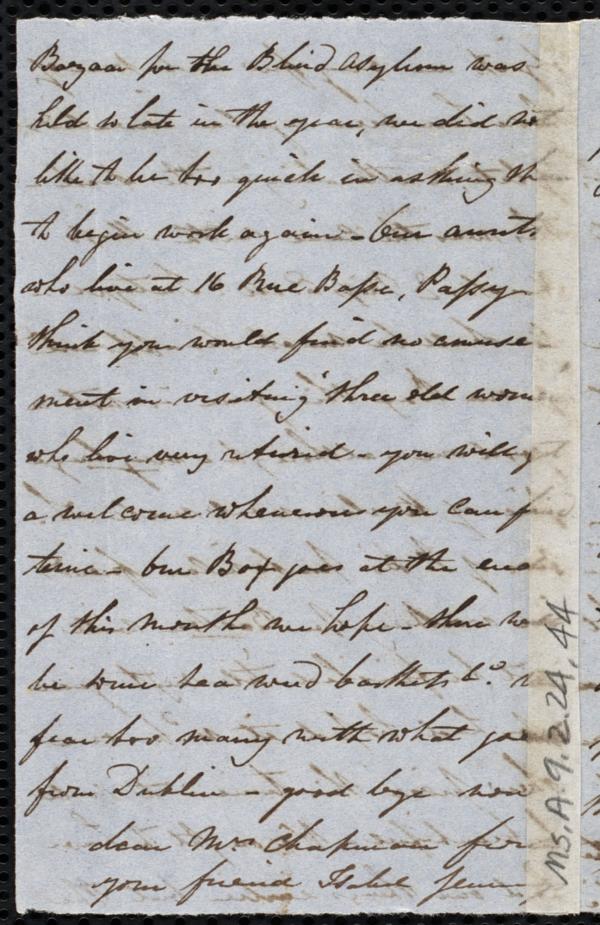 Bazaar for the Blind Asylum was
held so late in the year, we did no
like to be too quick in asking th
to begin work again - Our aunts
who live at 16 Rue Basse, Passy
think you would find no amuse
ment in visiting "three old wom
who live very retired - you will g
a welcome whenever you can f
time - Our Box goes at the end
of this month we hope - there w
be some sea weed baskets &c.
fear too many with what goe
from Dublin - good bye now
dear Mrs Chapman
your friend Isabel Jenn
Ms. A. 9. 2. 24, 44